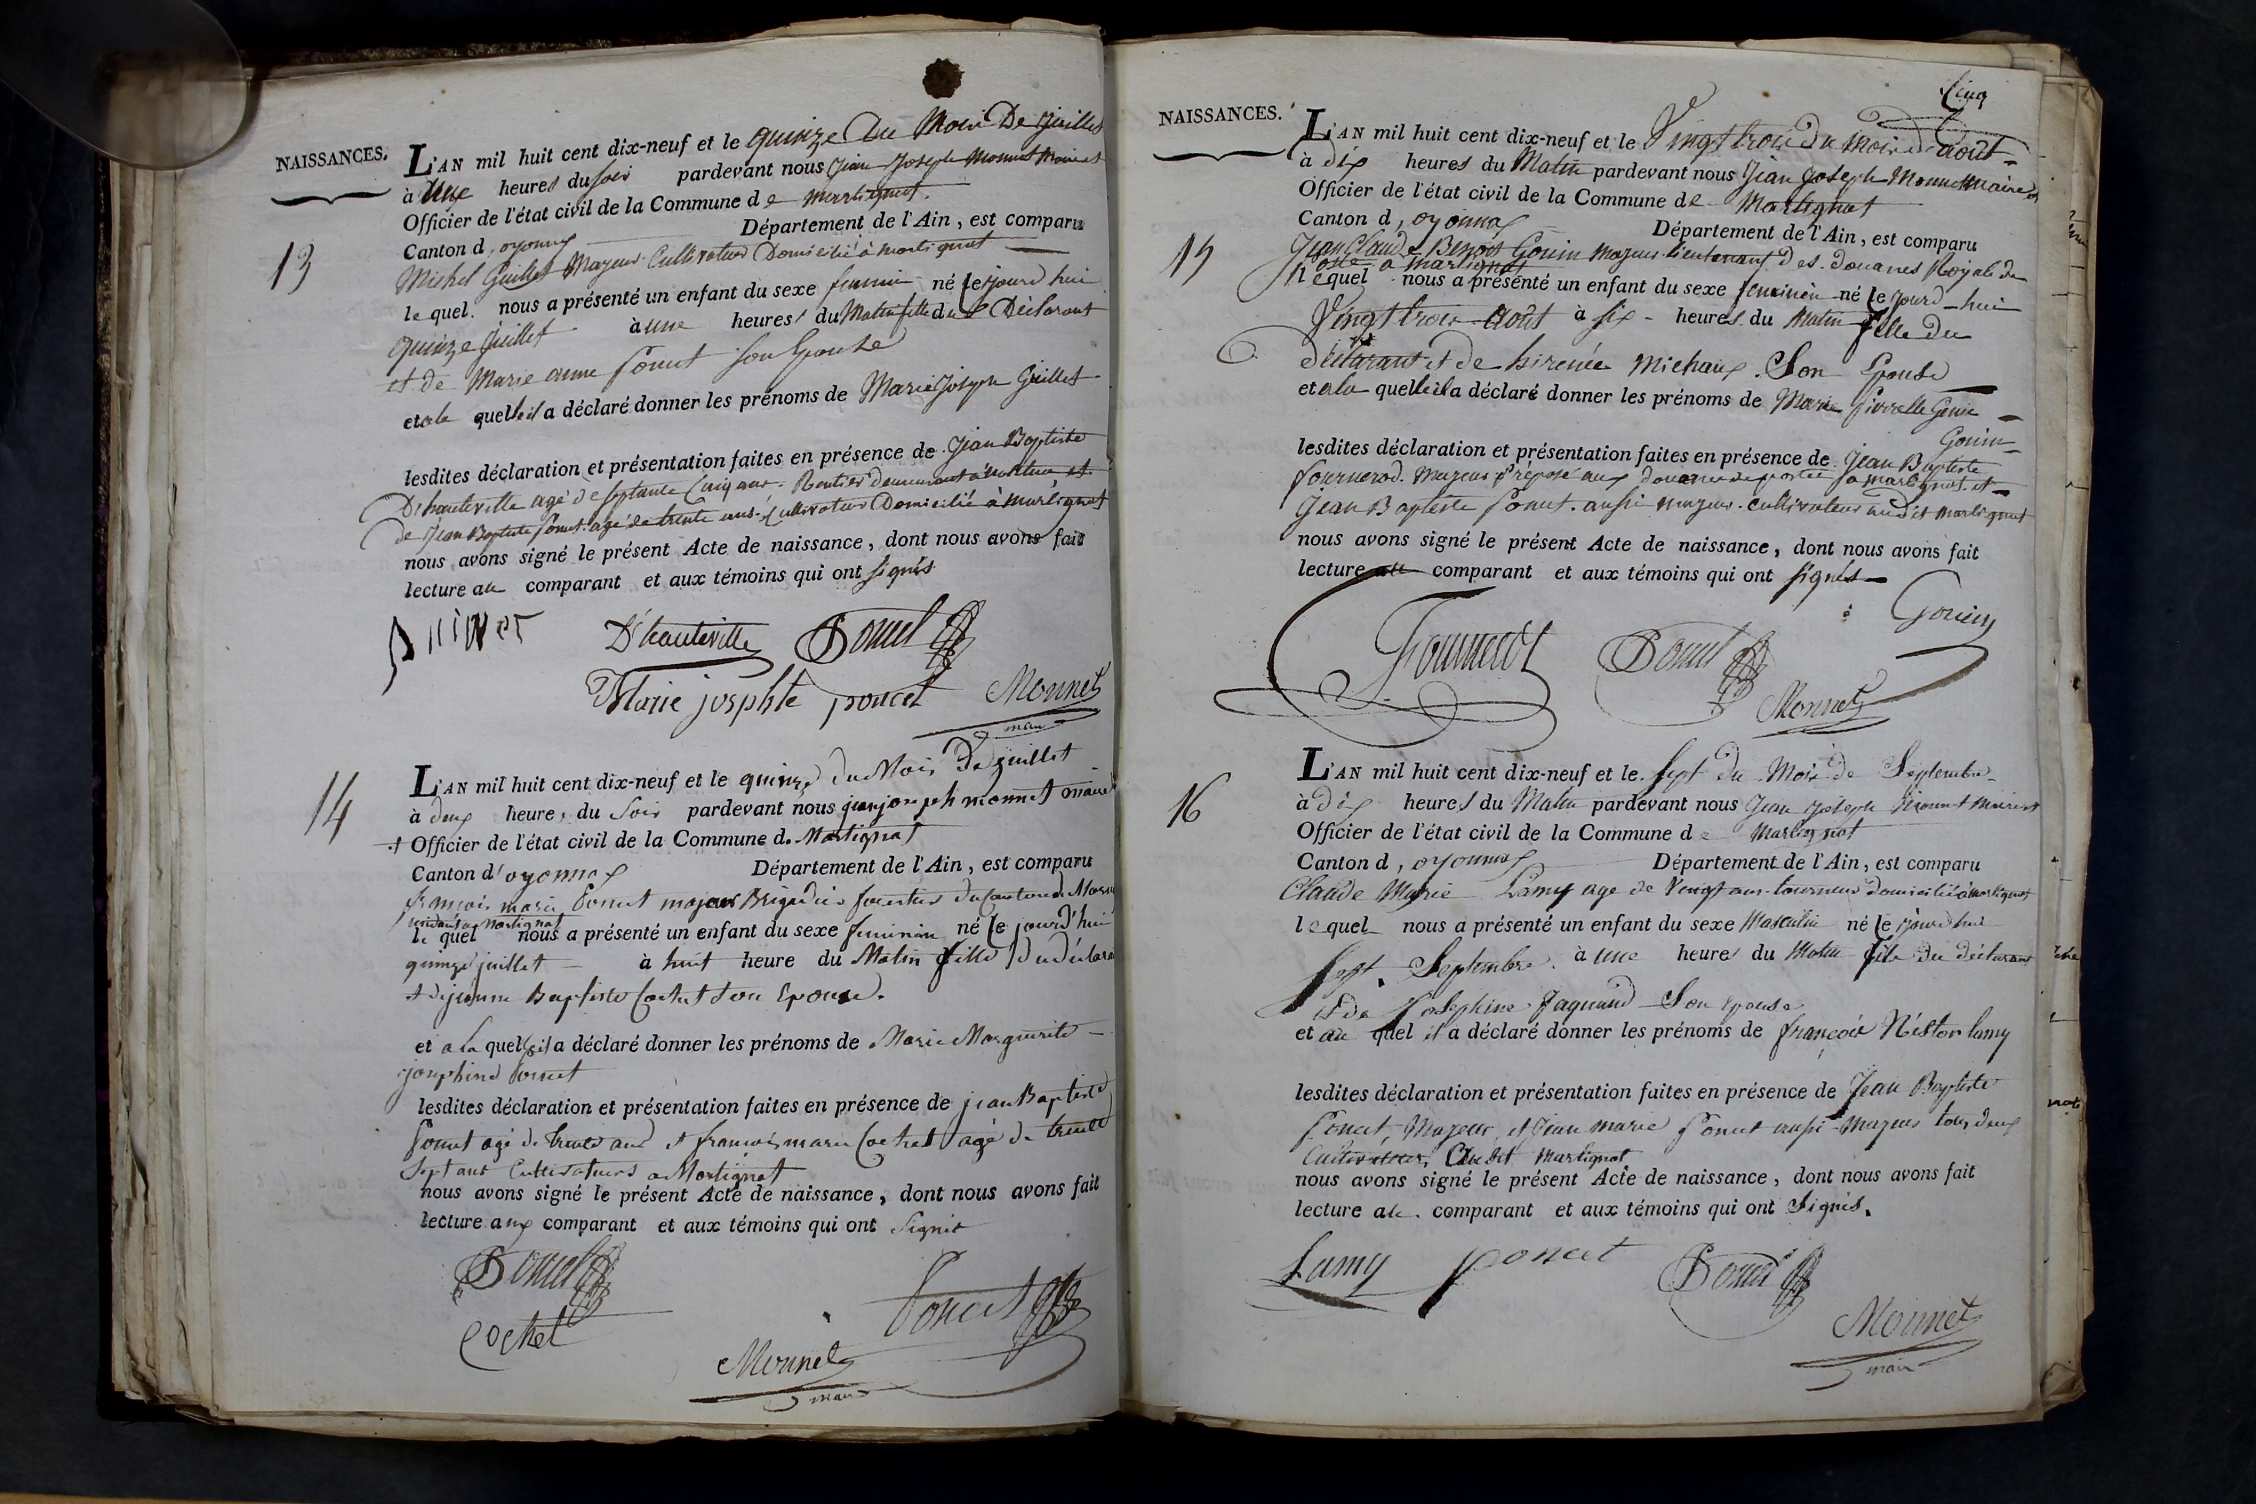 NAISSANCES.
13
L'AN mil huit cent dix-neuf et le quinze du Mois De Juillet
à une heures du soir pardevant nous Jean Joseph Monnet Maire et
Officier de l'état civil de la Commune de Martignat.
Canton d, oyonnax Département de l'Ain, est comparu
Michel Guillet Majeur Cultivateur Domicilié à Martignat
lequel nous a présenté un enfant du sexe feminin né le jourd hui
quinze Juillet à une heures du Matin fille du Déclarant
et de Marie anne Poncet son Epouse
et a la quelle il a déclaré donner les prénoms de Marie Joseph Guillet
lesdites déclaration et présentation faites en présence de Jean Baptiste
D'hauteville agé de septante Cinq ans Rentier demeurant à et
de Jean Baptiste Poncet agé de trente ans Cultivateur Domicilié à Martignat
nous avons signé le présent Acte de naissance, dont nous avons fait
lecture au comparant et aux témoins qui ont signés
D'hauteville Poncet
Marie josephte poncet Monnet
maire
14
L'AN mil huit cent dix-neuf et le quinze du Mois De juillet
à deux heure, du Soir pardevant nous jean joseph monnet maire
et Officier de l'état civil de la Commune de Martignat
Canton d'oyonnax Département de l'Ain, est comparu
françois marie Poncet majeur Brigadier forestier du Canton de
residant a Martignat
le quel nous a présenté un enfant du sexe feminin né le jourd'hui
quinze juillet à huit heure du Matin fille du déclarant
et de jeanne Baptiste Cochet son Epouse.
et a la quelle il a déclaré donner les prénoms de Marie Marguerite
josephine Poncet
lesdites déclaration et présentation faites en présence de jean Baptiste
Poncet agé de trente ans et françois marie Cochet agé de trente
Sept ans Cultivateurs a Martignat
nous avons signé le présent Acte de naissance, dont nous avons fait
lecture aux comparant et aux témoins qui ont Signé
Poncet
Poncet
Cochet
Monnet
maire
Cinq
NAISSANCES.
15
L'AN mil huit cent dix-neuf et le Vingt trois du Mois d'août
à dix heures du Matin pardevant nous Jean Joseph Monnet Maire et
Officier de l'état civil de la Commune de Martignat
Canton d, oyonnax Département de l'Ain, est comparu
Jean Claude Benoit Gouin majeur lieutenant des douanes Royale de
à Martignat
lequel nous a présenté un enfant du sexe feminin né le jourd-hui
Vingt trois Août à six heures du Matin fille du
déclarant et de Sirenée Michaux Son Epouse
et a la quelle il a déclaré donner les prénoms de Marie Pierrette
Gouin
lesdites déclaration et présentation faites en présence de Jean Baptiste
Fournerod Majeur Préposé aux douanes de a Martignat et
Jean Baptiste Poncet aussi majeur cultivateur audit Martignat
nous avons signé le présent Acte de naissance, dont nous avons fait
lecture au comparant et aux témoins qui ont signés
Gouin
Fournerod Poncet
Monnet
16
L'AN mil huit cent dix-neuf et le Sept du Mois de Septembre
à dix heures du Matin pardevant nous Jean Joseph Monnet Maire et
Officier de l'état civil de la Commune de Martignat
Canton d, oyonnax Département de l'Ain, est comparu
Claude Marie Lamy age de Vingt ans tourneur domicilié à Martignat
lequel nous a présenté un enfant du sexe Masculin né le jourd hui
Sept Septembre à une heures du Matin fils du déclarant
et de Josephine Jaquand Son épouse
et au quel il a déclaré donner les prénoms de françois Néstor Lamy
lesdites déclaration et présentation faites en présence de Jean Baptiste
Poncet, Majeur et Jean marie Poncet aussi Majeur tous deux
Cultivateurs, Audit Martignat
nous avons signé le présent Acte de naissance, dont nous avons fait
lecture au comparant et aux témoins qui ont Signés.
Lamy poncet Poncet
Monnet
maire